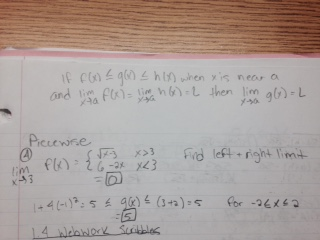 If f(x) ≤ g(x) ≤ h(x) when x is near a
and lim x→a f(x) = lim x→a h(x) = L then lim x→a g(x) = L
Piecewise
lim x→3 f(x) = { √x-3 x>3 Find left + right limit
6-2x x<3
= 0
1+4(-1)² = 5 ≤ g(x) ≤ (3+2) = 5 for -2≤x≤2
= 5
1.4 WebWork Scribbles